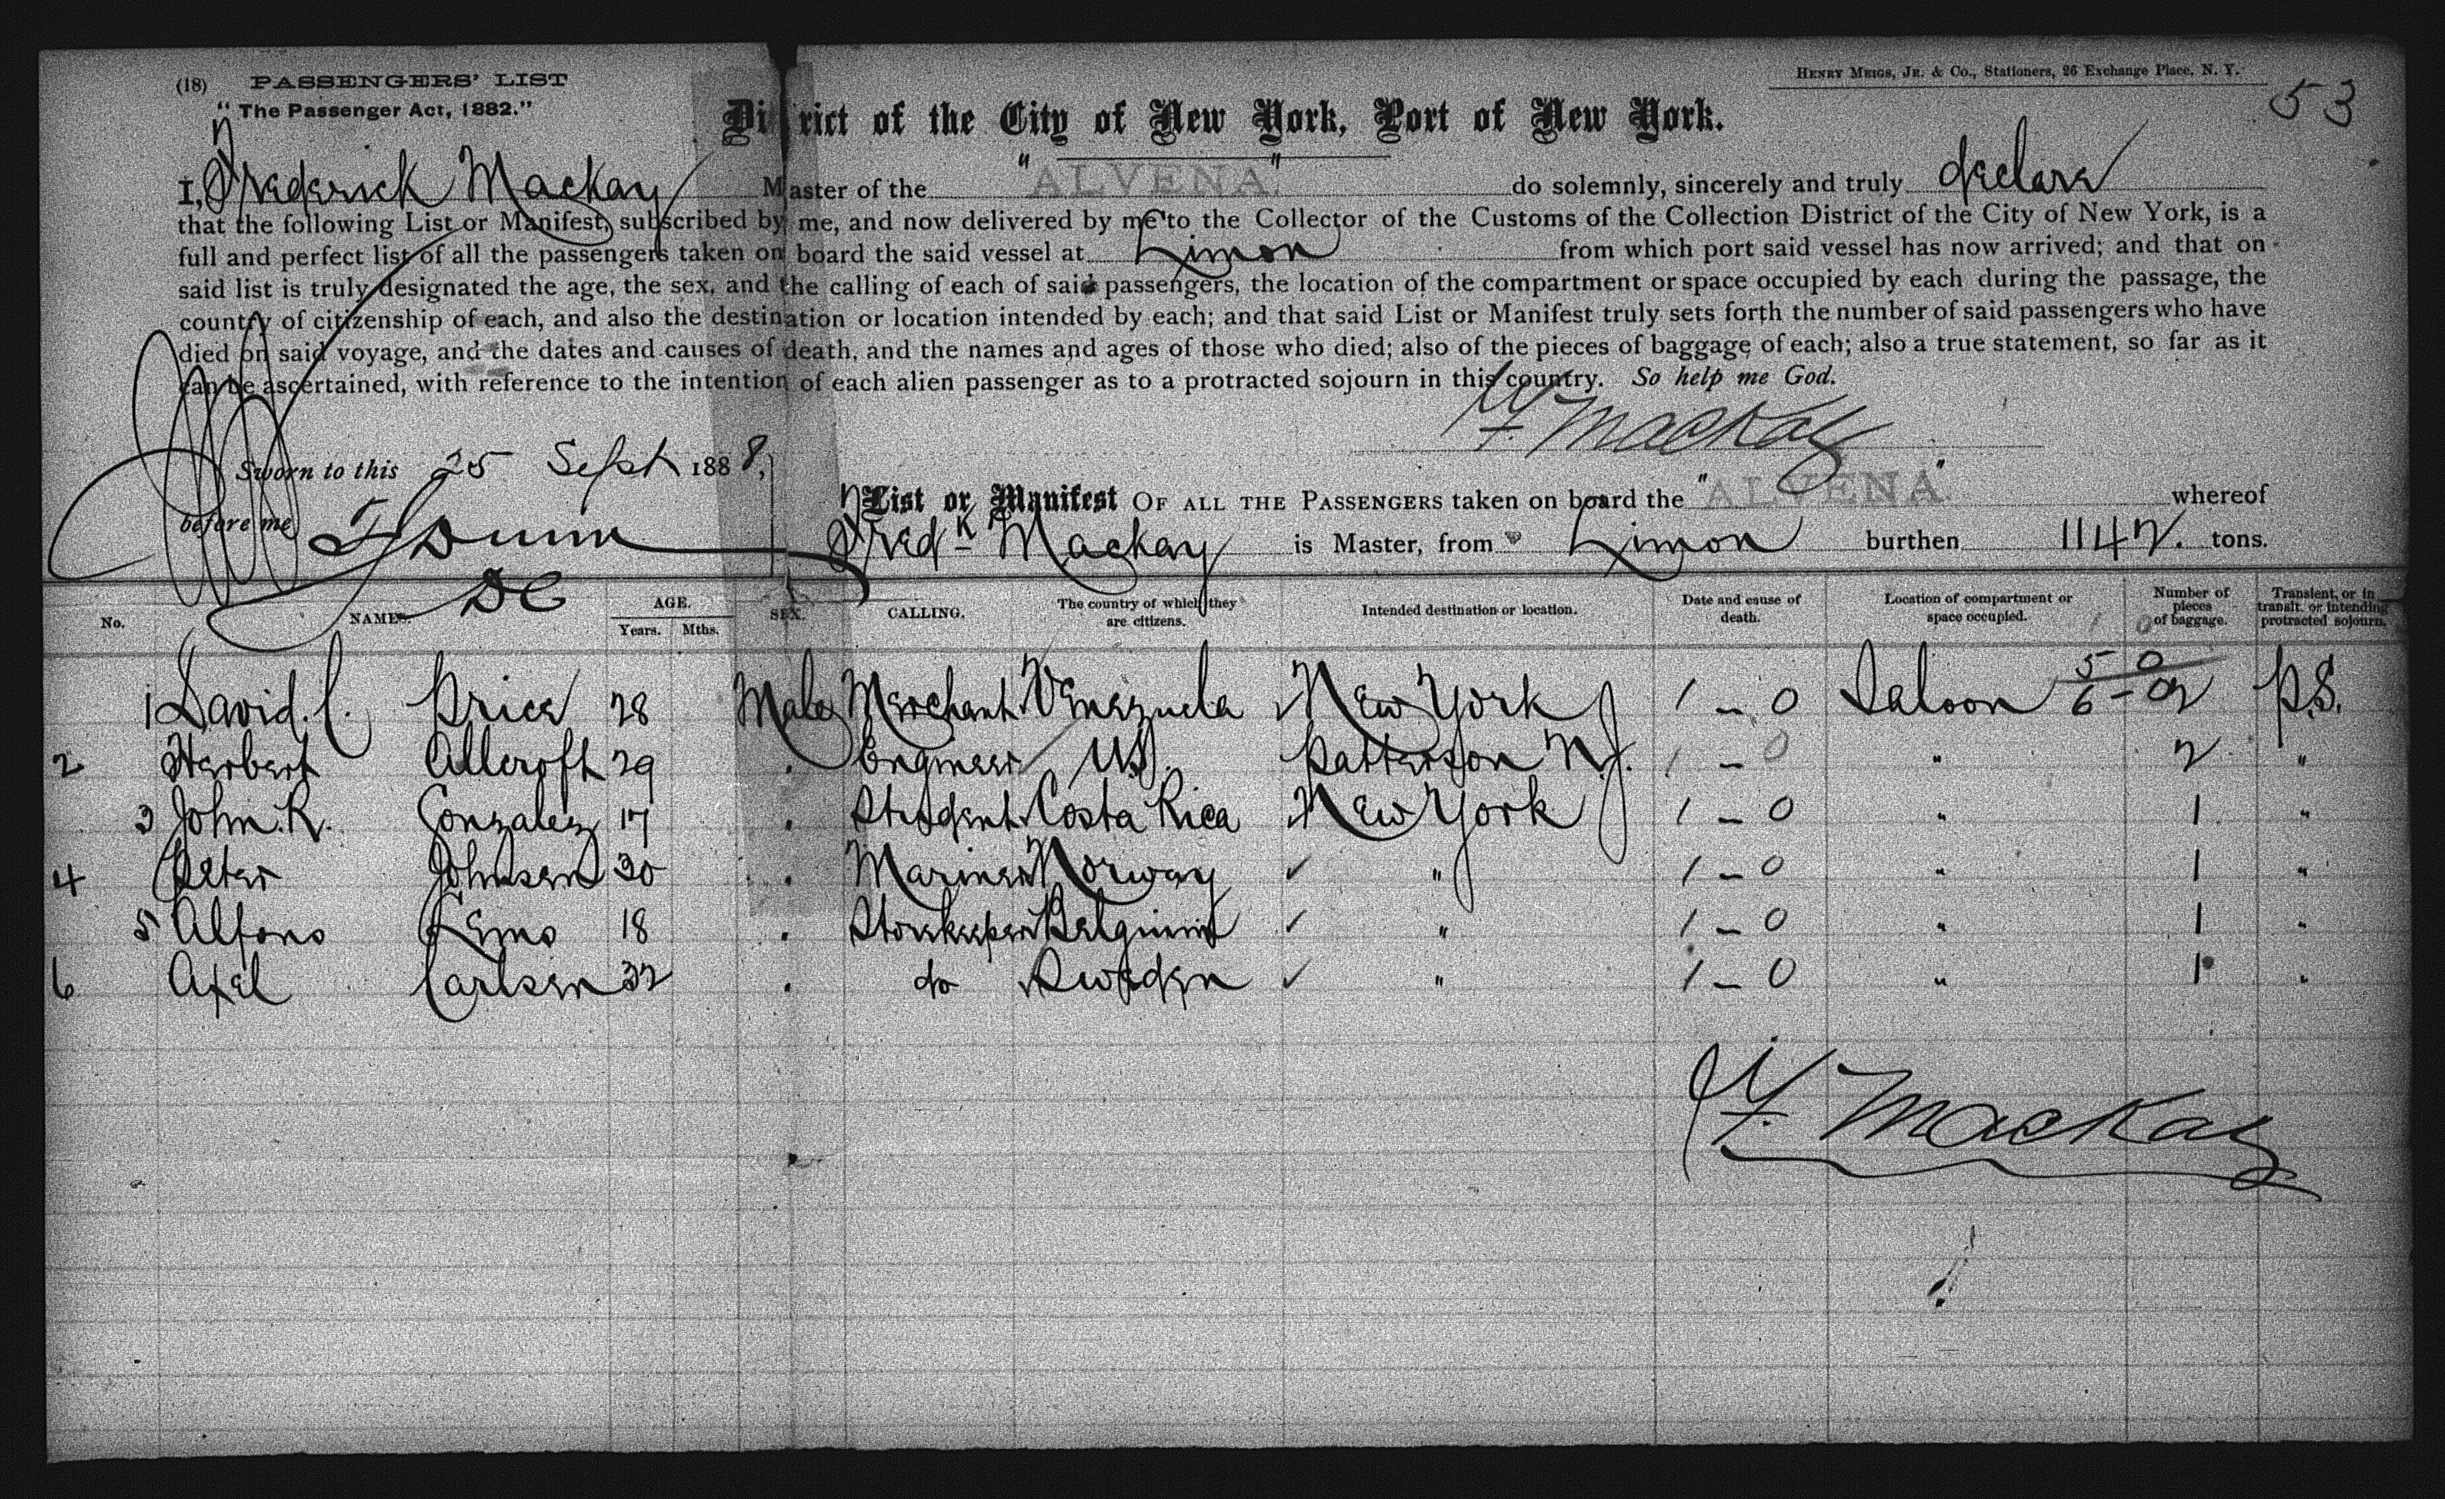 (18) PASSENGERS' LIST
HENRY MEIGS, JR. & CO., Stationers, 26 Exchange Place, N. Y.
53
"The Passenger Act, 1882."
District of the City of New York, Port of New York.
I, Frederick Mackay Master of the "ALVENA" do solemnly, sincerely and truly declare
that the following List or Manifest, subscribed by me, and now delivered by me to the Collector of the Customs of the Collection District of the City of New York, is a
full and perfect list of all the passengers taken on board the said vessel at Limon from which port said vessel has now arrived; and that on
said list is truly designated the age, the sex, and the calling of each of said passengers, the location of the compartment or space occupied by each during the passage, the
country of citizenship of each, and also the destination or location intended by each; and that said List or Manifest truly sets forth the number of said passengers who have
died on said voyage, and the dates and causes of death, and the names and ages of those who died; also of the pieces of baggage of each; also a true statement, so far as it
can be ascertained, with reference to the intention of each alien passenger as to a protracted sojourn in this country. So help me God.
F. Mackay
Sworn to this 25 Sept 1888,
before me Dunn
DC
List or Manifest OF ALL THE PASSENGERS taken on board the "ALVENA" whereof
Fredk Mackay is Master, from Limon burthen 1142. tons.
No. NAMES. AGE. Years. Mths. SEX. CALLING. The country of which they are citizens. Intended destination or location. Date and cause of death. Location of compartment or space occupied. Number of pieces of baggage. Transient, or in transit, or intending protracted sojourn.
5 0
1 David. C. Price 28 Male Merchant Venezuela New York 1 - 0 Saloon 6 - 2 P.S.
2 Herbert Allcroft 29 " Engineer U.S. Patterson N.J. 1 - 0 " 2 "
3 John. R. Gonzalez 17 " Student Costa Rica New York 1 - 0 " 1 "
4 Peter Johnsen 30 " Mariner Norway ✓ " 1 - 0 " 1 "
5 Alfons 18 " Storekeeper Belguim ✓ " 1 - 0 " 1 "
6 Axel Carlsen 32 " do Sweden ✓ " 1 - 0 " 1 "
F. Mackay